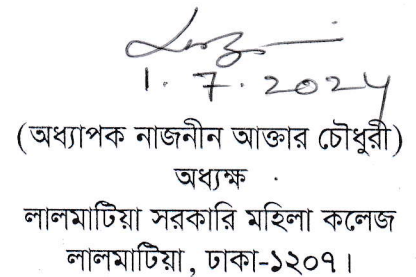 1.7.2024
(অধ্যাপক নাজনীন আক্তার চৌধুরী)
অধ্যক্ষ
লালমাটিয়া সরকারি মহিলা কলেজ
লালমাটিয়া, ঢাকা-১২০৭।